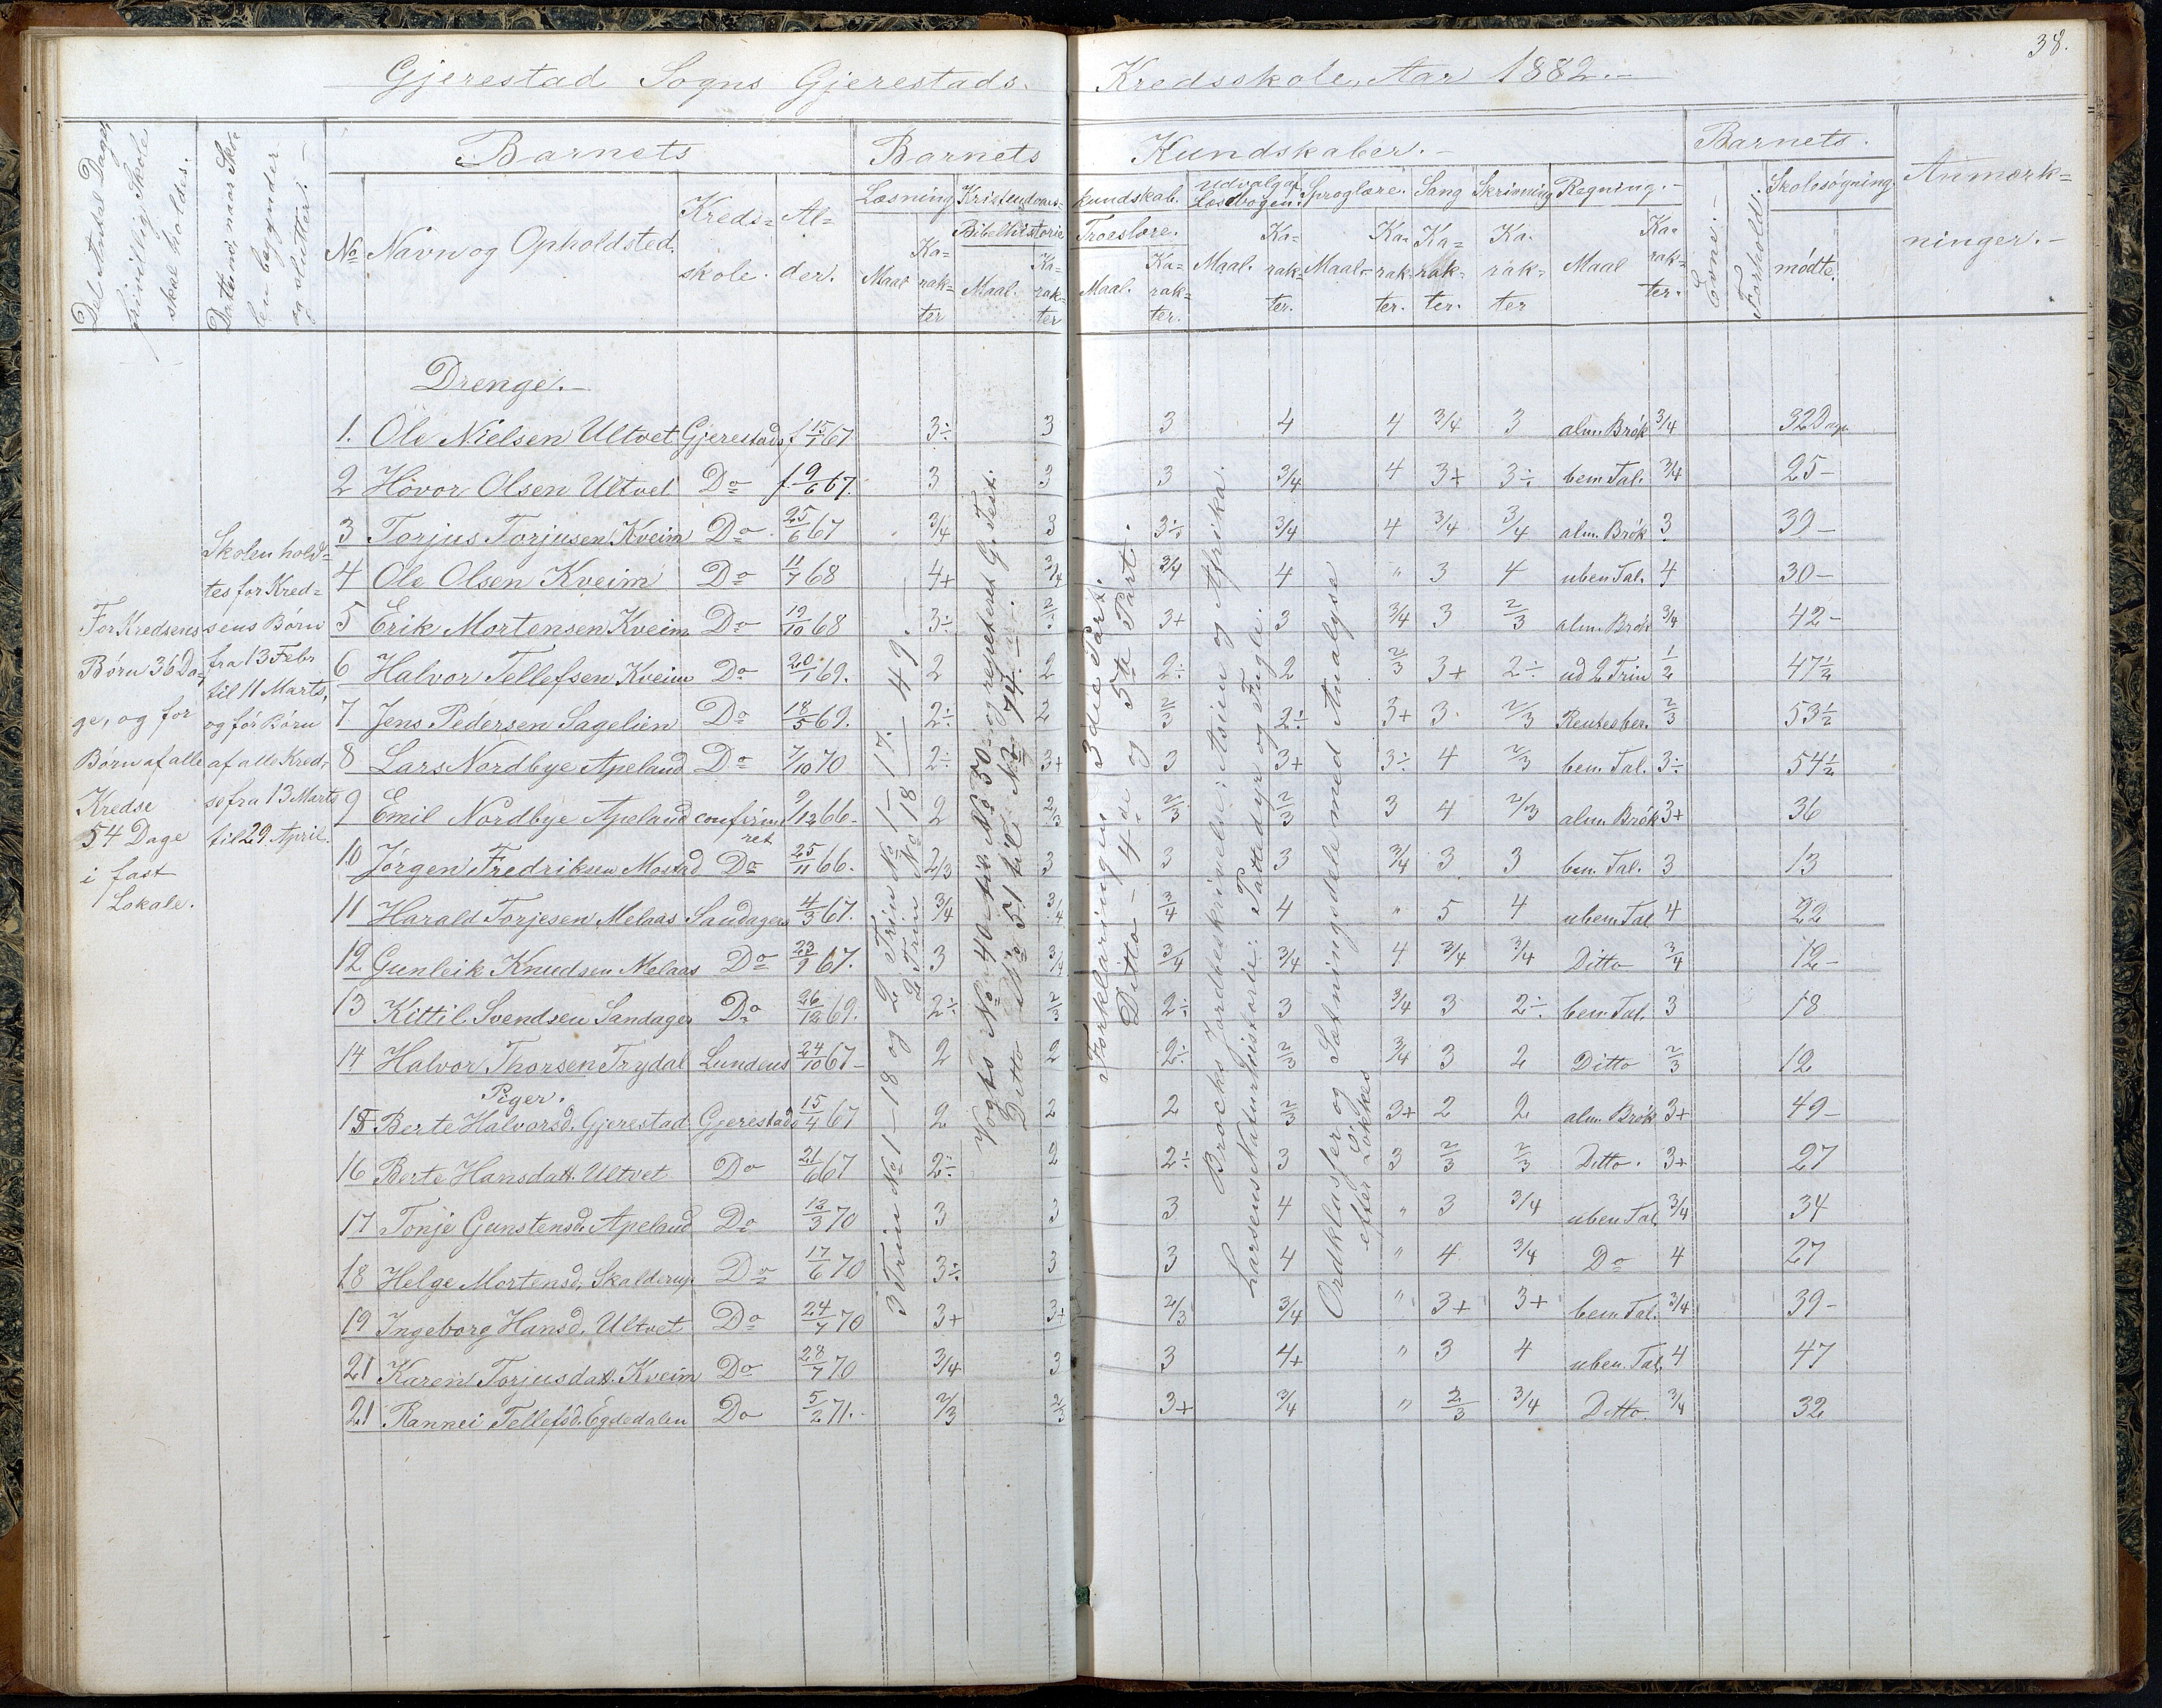 38.
Gjerestad Sogns Gjerestads Kredsskole, Aar 1882.-
Det Antal Dage, frivillig Skole skal holdes.
Datoerne, naar Skolen begynder og slutter.-
Barnets
No Navn og Opholdsted.
Kreds=skole.
Al=der.
Barnets Kundskaber.-
Læsning
Maal Ka=rak=ter
Kristendoms=kundskab.
Bibelhistorie
Maal. Ka=rak=ter
Troeslære.
Maal. Ka=rak=ter.
Udvalg af Læsebogen.
Maal. Ka=rak=ter.
Sproglære.
Maal- Ka=rak=ter.
Sang
Ka=rak=ter.
Skrivning
Ka=rak=ter
Regning.-
Maal Ka=rak=ter.
Barnets.
Evne.-
Forhold.
Skolesøgning.
mødte.
Anmærk=
ninger.-
For Kredsens
Børn 36 Da=
ge, og for
Børn af alle
Kredse
54 Dage
i fast
Lokale.
Skolen hold=
tes for Kred=
sens Børn
fra 13 Febr
til 11 Marts,
og for Børn
af alle Kred=
se fra 13 Marts
til 29 April.
Drenge.-
1. Ole Nielsen Ultvet Gjerestads f 15/1 67 3÷ 3 3 4 4 3/4 3 alm. Brøk 3/4 32 Dage
2 Hovor Olsen Ultvet Do f. 9/6 67. 3 3 3 3/4 4 3+ 3÷ bem Tal. 3/4 25-
3 Torjus Torjusen Kveim Do 25/6 67 3/4 3 3÷ 3/4 4 3/4 3/4 alm. Brøk 3 39-
4 Ole Olsen Kveim Do 11/7 68 4+ 3/4 3/4 4 " 3 4 uben Tal. 4 30-
5 Erik Mortensen Kveim Do 12/10 68 3÷ 2/3 3+ 3 3/4 3 2/3 alm. Brøk 3/4 42-
6 Halvor Tellefsen Kveim Do 20/1 69. 2 2 2÷ 2 2/3 3+ 2÷ ud 2 Trin 1/2 47½
7. Jens Pedersen Sagelien Do 18/5 69. 2÷ 2 2/3 2÷ 3+ 3. 2/3 Rentesber. 2/3 53½
8 Lars Nordbye Apeland Do 7/10 70 2÷ 3+ 3 3+ 3÷ 4 2/3 bem. Tal. 3÷ 54½
9 Emil Nordbye Apeland confirmeret 2/12 66- 2 2/3 2/3 2/3 3 4 2/3 alm. Brøk 3+ 36
10 Jørgen Fredriksen Mostad Do 25/11 66. 2/3 3 3 3 3/4 3 3 bem. Tal. 3 13
11 Harald Torjesen Melaas Sandagers 4/3 67. 3/4 3/4 3/4 4 " 5 4 uben Tal 4 22
12 Gunleik Knudsen Melaas Do 23/9 67. 3 3/4 3/4 3/4 4 3/4 3/4 Ditto 3/4 12-
13 Kittil Svendsen Sandager Do 26/12 69. 2÷ 2/3 2÷ 3 3/4 3 2÷ bem. Tal. 3 18
14 Halvor Thorsen Trydal Lundens 24/10 67- 2 2 2÷ 2/3 3/4 3 2 Ditto 2/3 12
Piger.
15 Berte Halvorsd. Gjerestad Gjerestads 15/4 67 2 2 2 2/3 3+ 2 2 alm. Brøk 3+ 49-
16 Berte Hansdatt. Ultvet Do 21/6 67 2÷ 2 2÷ 3 3 2/3 2/3 Ditto. 3+ 27
17 Tonje Gunstensd. Apeland Do 12/3 70 3 3 3 4 " 3 3/4 uben Tal. 3/4 34
18 Helge Mortensd. Skalderup Do 17/6 70 3÷ 3 3 4 " 4 3/4 Do 4 27
19 Ingeborg Hansd. Ultvet Do 24/7 70 3+ 3+ 2/3 3/4 " 3+ 3+ bem. Tal. 3/4 39-
21 Karen Torjusdatt. Kveim Do 28/7 70 3/4 3 3 4+ " 3 4 uben. Tal. 4 47
21 Rannei Tellefsd. Egdedalen Do 5/2 71.- 2/3 2/3 3+ 3/4 " 2/3 3/4 Ditto. 3/4 32
3 Trin No 1-18 og 2 Trin No 1-17.
2 Trin No 18-49.
Vogts No 40 til No 50 og repeteret G. Test.
Ditto No 51 til No 74.
Forklaringen 3die Part.
Ditto - 4de og 5te Part.
Brocks Jordbeskrivelse: Asien og Afrika.
Larsens Naturhistorie: Pattedyr og Fugle.
Ordklasser og Sætningsdele med Analyse
efter Løkkes